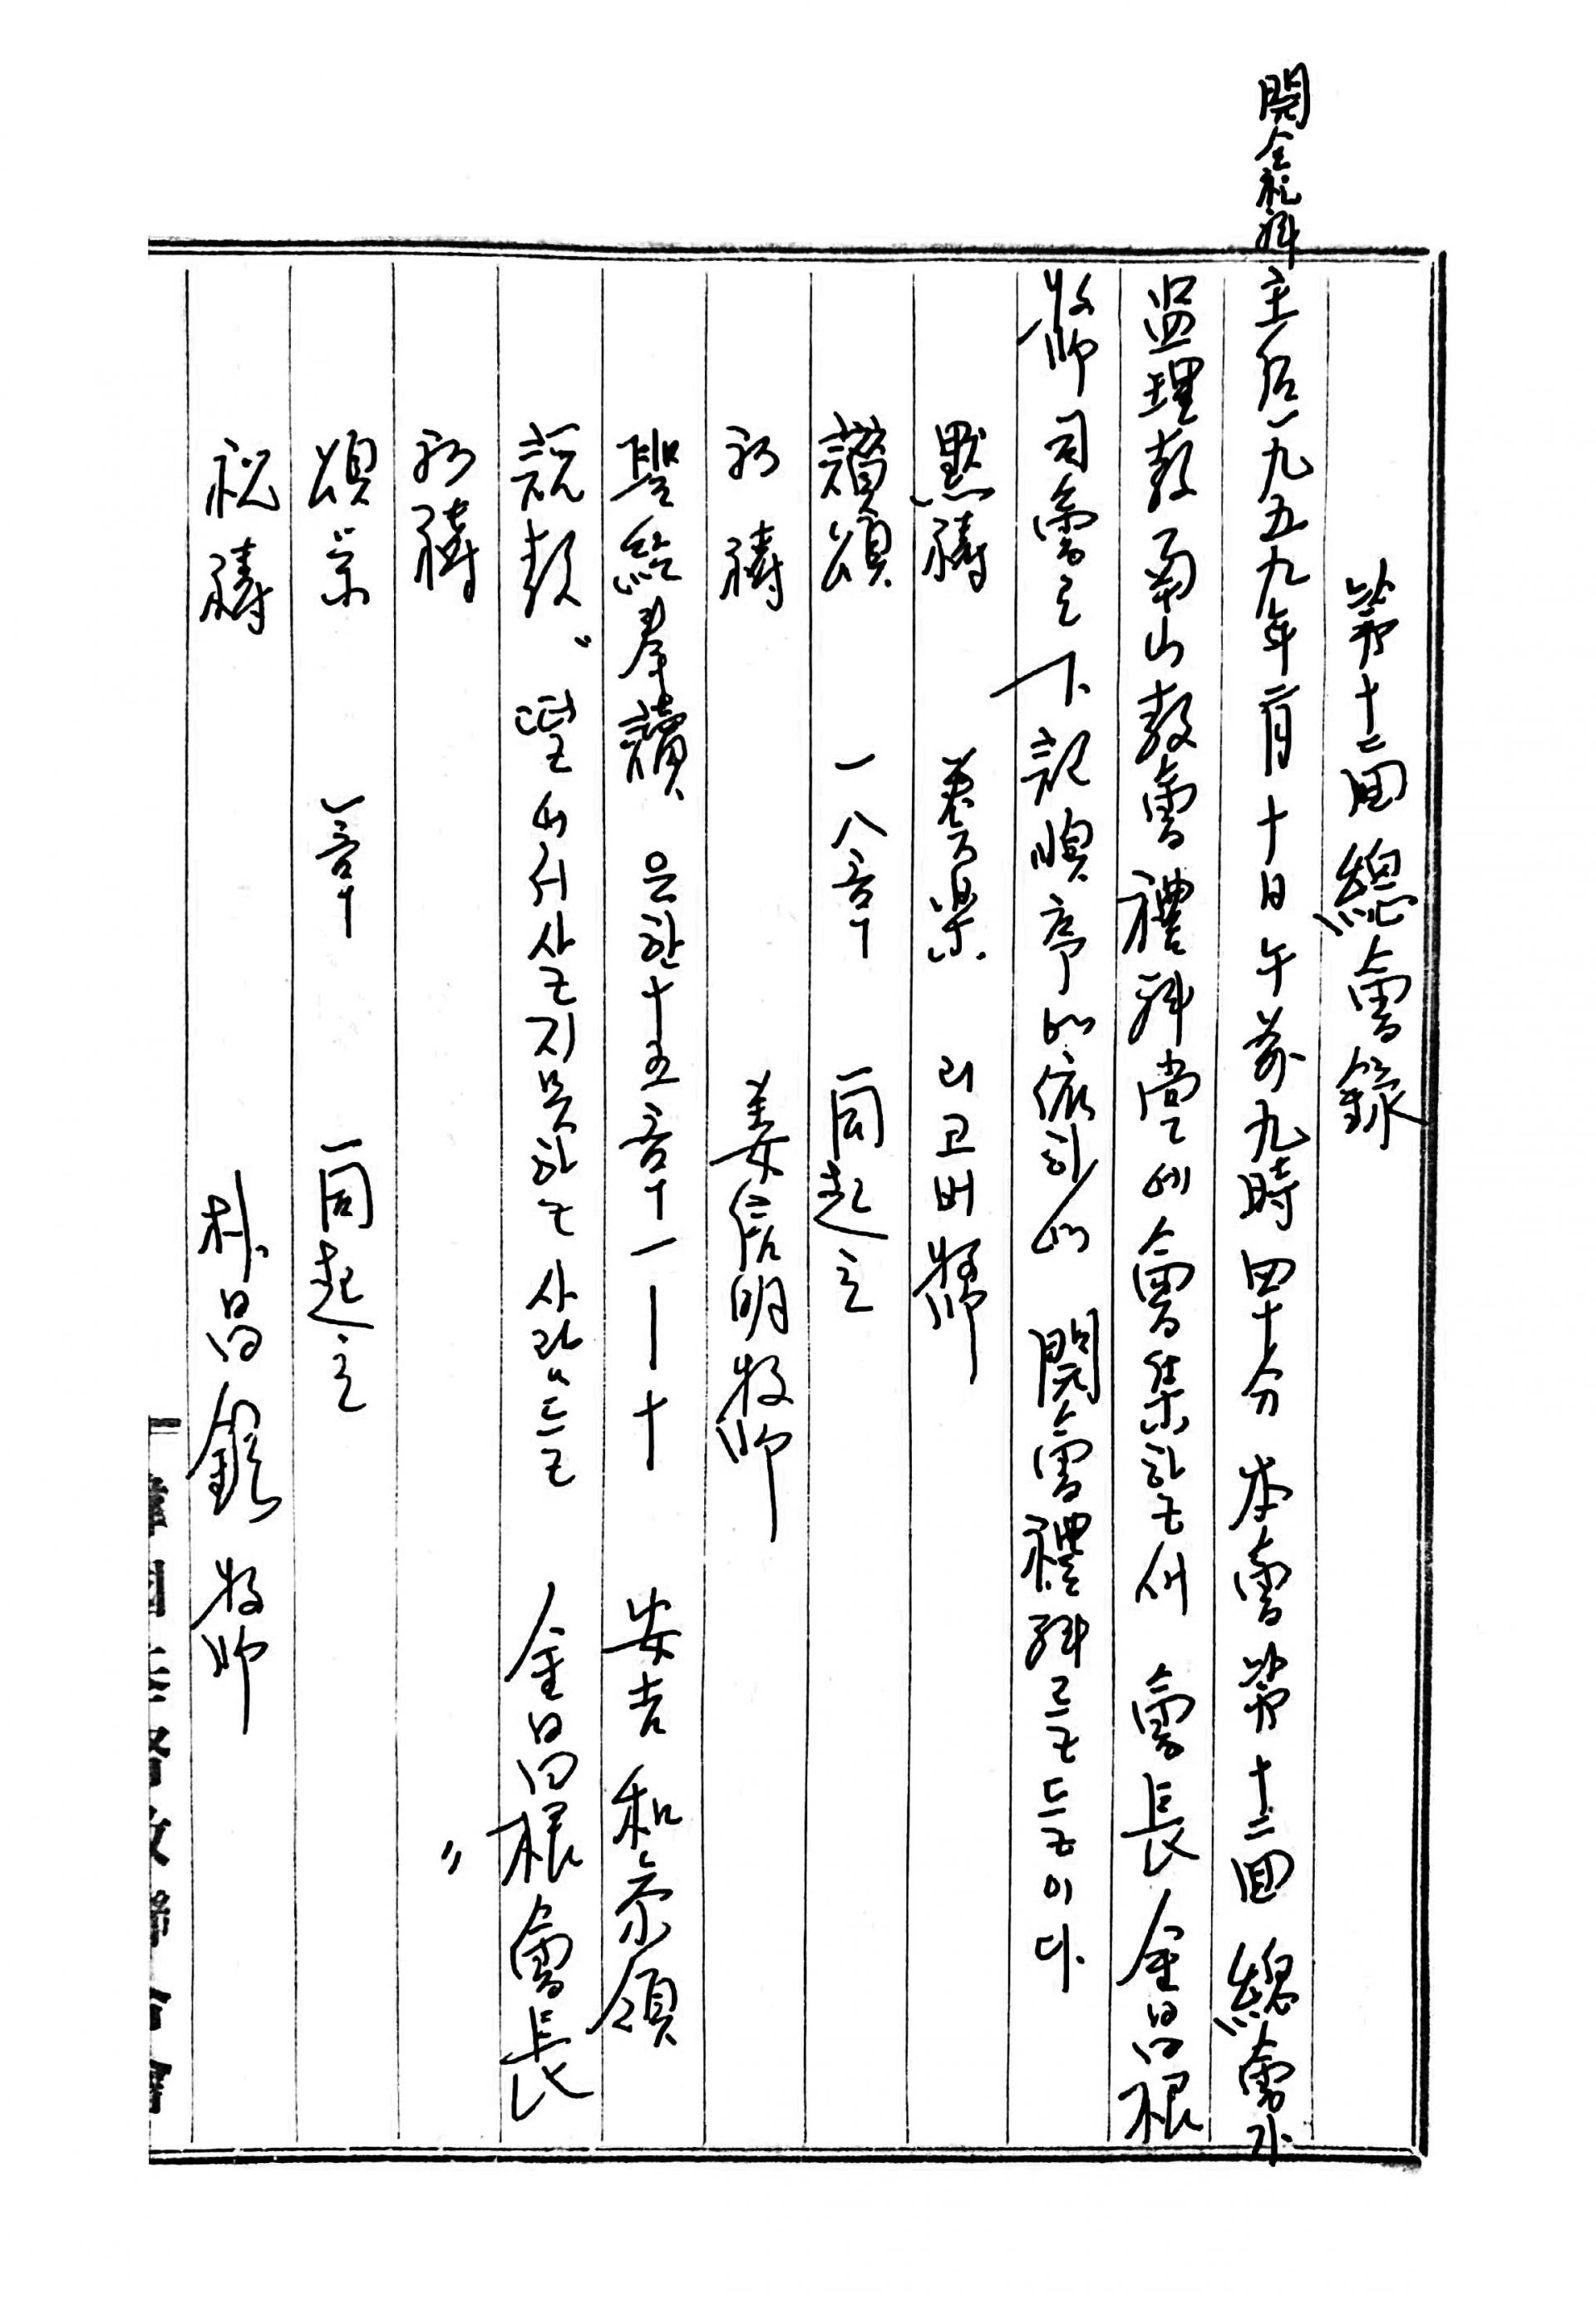 第十二回 總會錄
開会礼拜
主后一九五九年 二月 十日 午前 九時 四十分 本會 第十二回 總會가
監理敎 南山敎會 禮拜堂에 會集하고서 會長 金昌根
牧師 司會로 下記 順序에 依하야 開會禮拜를 드를이다
默禱 奏楽 리고버 牧師
讚頌 一八章 一同起立
祈禱 姜信明 牧師
聖經奉讀 요한 十五章 一 — 十 安吉和 参領
說敎 〃떨어서 살지 못하는 사람들〃 金昌根 會長
祈禱 〃
頌栄 一章 一同起立
祝禱 朴昌鉉 牧師
韓國基督敎聯合會